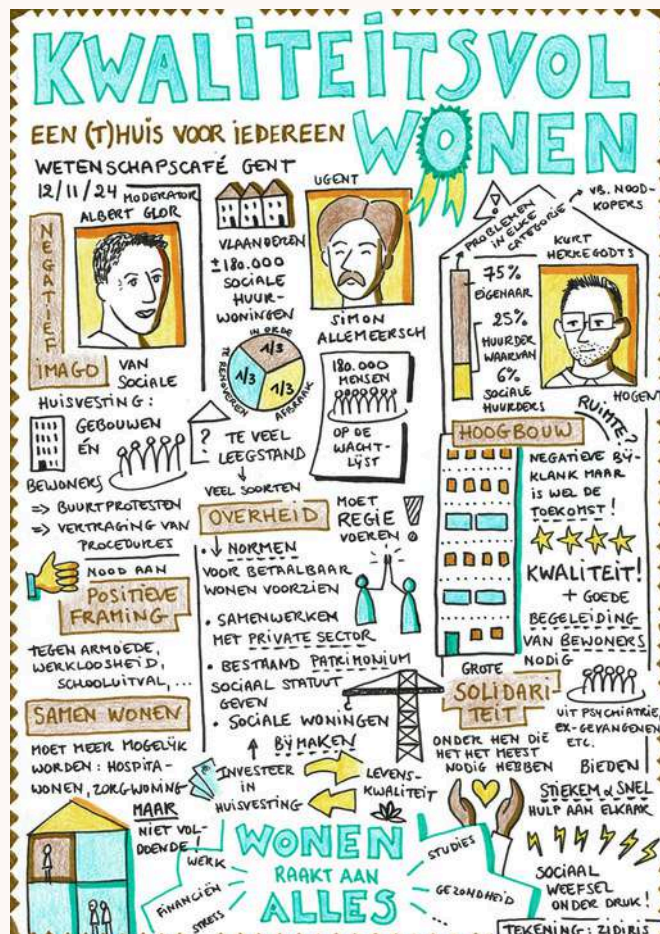 KWALITEITSVOL
WONEN
EEN (T)HUIS VOOR IEDEREEN
WETENSCHAPSCAFÉ GENT
12/11/24
MODERATOR
ALBERT GLOR
NEGATIEF
IMAGO
VAN
SOCIALE
HUISVESTING:
GEBOUWEN
ÉN
BEWONERS
=> BUURTPROTESTEN
=> VERTRAGING VAN
PROCEDURES
NOOD AAN
POSITIEVE
FRAMING
TEGEN ARMOEDE,
WERKLOOSHEID,
SCHOOLUITVAL, ...
SAMEN WONEN
MOET MEER MOGELIJK
WORDEN: HOSPITA-
WONEN, ZORGWONING
MAAR
NIET VOL-
DOENDE!
VLAANDEREN
± 180.000
SOCIALE
HUUR-
WONINGEN
IN ORDE
1/3
TE RENOVEREN
1/3
AFBRAAK
1/3
?
TE VEEL
LEEGSTAND
VEEL SOORTEN
UGENT
SIMON
ALLEMEERSCH
180.000
MENSEN
OP DE
WACHT-
LIJST
OVERHEID
MOET
REGIE
VOEREN
!
• ↓ NORMEN
VOOR BETAALBAAR
WONEN VOORZIEN
• SAMENWERKEN
MET PRIVATE SECTOR
• BESTAAND PATRIMONIUM
SOCIAAL STATUUT
GEVEN
• SOCIALE WONINGEN
BIJMAKEN
INVESTEER
IN
HUISVESTING
LEVENS-
KWALITEIT
!
PROBLEMEN
IN ELKE
CATEGORIE
VB. NOOD-
KOPERS
75%
EIGENAAR
25%
HUURDER
WAARVAN
6%
SOCIALE
HUURDERS
KURT
HERREGODTS
HOGENT
HOOGBOUW
RUIMTE?
NEGATIEVE BIJ-
KLANK MAAR
IS WEL DE
TOEKOMST!
KWALITEIT!
+ GOEDE
BEGELEIDING
VAN BEWONERS
NODIG
UIT PSYCHIATRIE,
EX-GEVANGENEN
ETC.
GROTE
SOLIDARI-
TEIT
ONDER HEN DIE
HET HET MEEST
NODIG HEBBEN
BIEDEN
STIEKEM & SNEL
HULP AAN ELKAAR
SOCIAAL
WEEFSEL
ONDER DRUK!
WONEN
RAAKT AAN
ALLES
WERK
FINANCIËN
STRESS
STUDIES
GEZONDHEID
...
TEKENING: ZIDIRIS